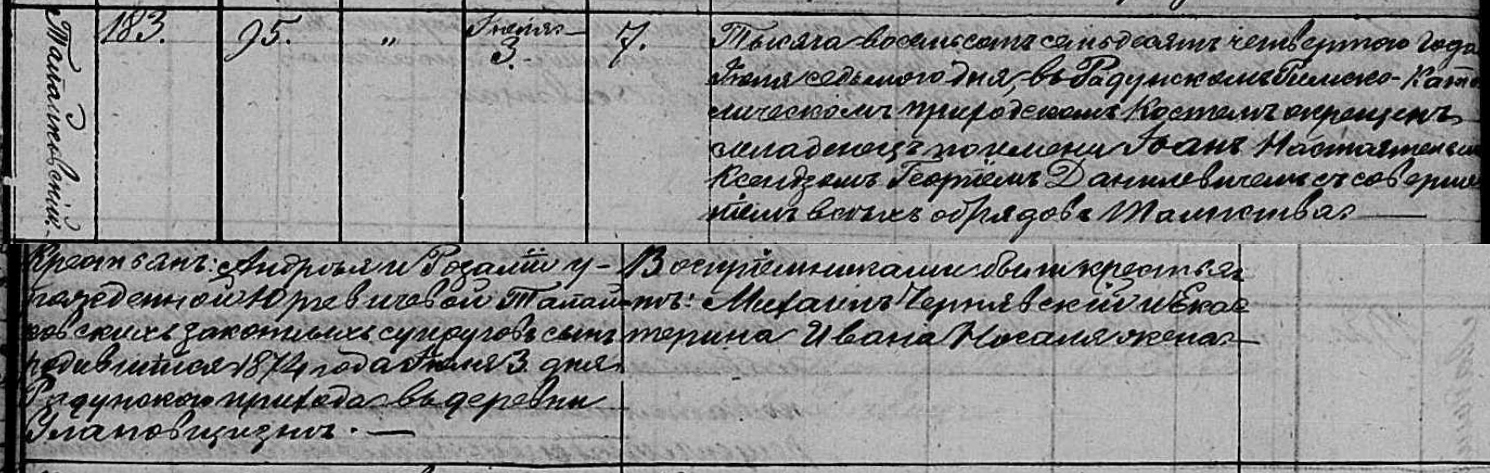 183.
95.
"
Іюля
3.
7.
Тысяча восемьсотъ семьдесятъ четвертого года
Іюля седьмого дня, въ Радунскомъ Римско-Като
лическомъ приходскомъ Костелѣ окрещенъ
младенецъ по имени Іоанъ Настоятелемъ
Ксендзомъ Георгіемъ Даниловичемъ съ соверше
ніемъ всѣхъ обрядовъ Таинства
Крестьянъ: Андрея и Розаліи у-
рожденной Юргевичовой
законныхъ супруговъ сынъ
родившійся 1874 года Іюля 3 дня
Радунского прихода въ деревни
Улановщизнѣ.
Воспріемниками были крестья
нѣ: Михаилъ Чернявскій и Екас
терина Ивана Носаля жена